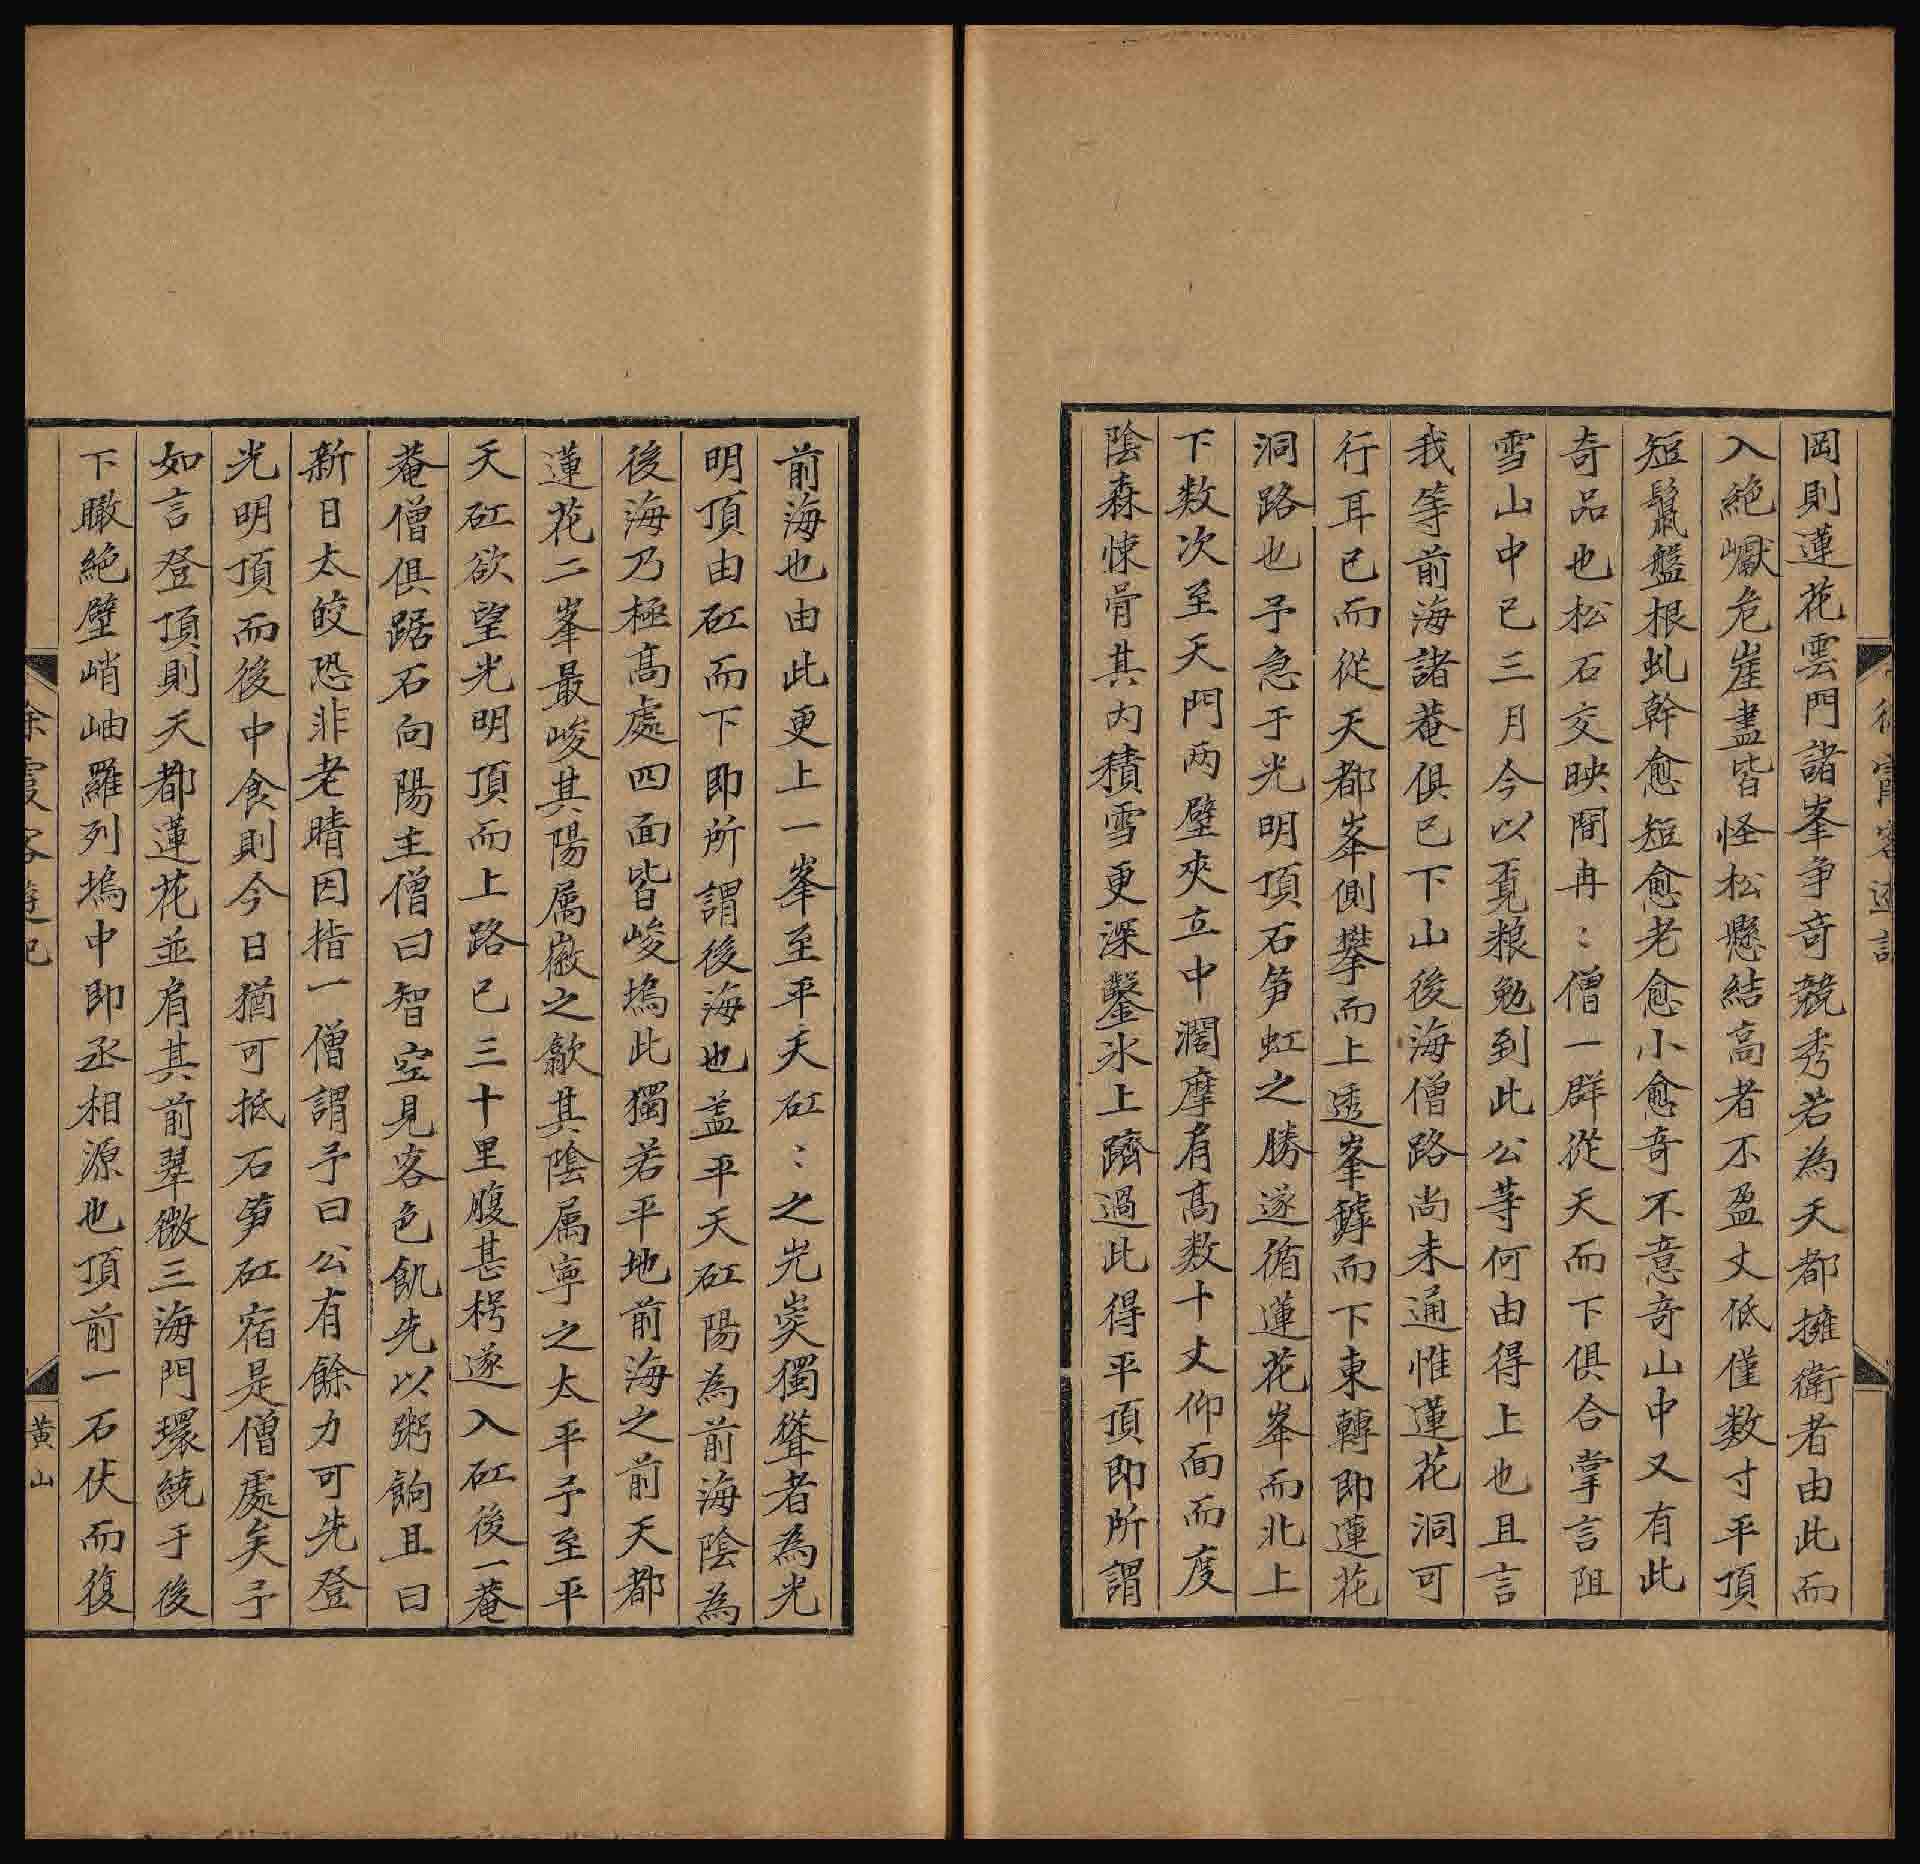 徐霞客遊記
岡則蓮花雲門諸峯争奇競秀若為天都擁衛者由此而
入絶巘危崖盡皆怪松懸結高者不盈丈低僅数寸平頂
短鬛盤根虬幹愈短愈老愈小愈奇不意奇山中又有此
奇品也松石交映間冉〻僧一群從天而下俱合掌言阻
雪山中已三月今以覔粮勉到此公等何由得上也且言
我等前海諸菴俱已下山後海僧路尚未通惟蓮花洞可
行耳已而從天都峯側攀而上透峯罅而下東轉即蓮花
洞路也予急于光明頂石笋虹之勝遂循蓮花峯而北上
下数次至天門两壁夾立中濶摩肩高数十丈仰面而度
陰森悚骨其内積雪更深鑿氷上躋過此得平頂即所謂
前海也由此更上一峯至平天矼〻之兀突獨聳者為光
明頂由矼而下即所謂後海也盖平天矼陽為前海陰為
後海乃極高處四面皆峻塢此獨若平地前海之前天都
蓮花二峯最峻其陽属徽之歙其陰属寧之太平予至平
天矼欲望光明頂而上路已三十里腹甚枵遂入矼後一菴
菴僧俱踞石向陽主僧曰智空見客色飢先以粥餉且曰
新日太皎恐非老晴因指一僧謂予曰公有餘力可先登
光明頂而後中食則今日猶可抵石笋矼宿是僧處矣予
如言登頂則天都蓮花並肩其前翠微三海門環繞于後
下瞰絶壁峭岫羅列塢中即丞相源也頂前一石伏而復
徐霞客遊記
黄山